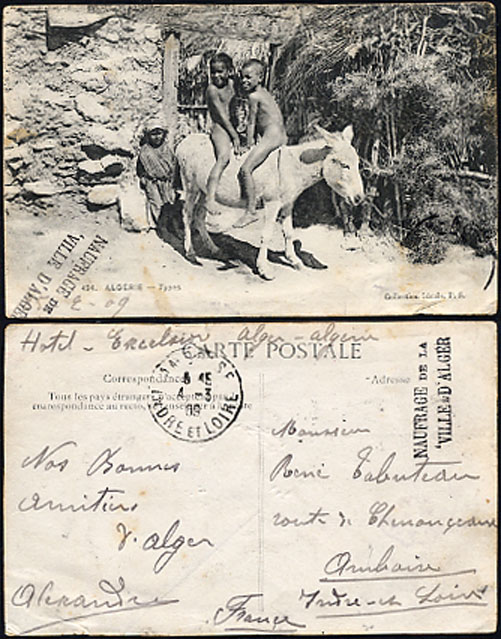 NAUFRAGE DE
"VILLE D'ALGER
434. ALGERIE — Types
2-09
Collection Idéale, P. S.
Hotel - Excelsior Alger - algerie
CARTE POSTALE
Correspondance
Adresse
Tous les pays étrangers n'acceptent pas la
correspondance au recto, se renseigner à la
5 45
4 3
09
INDRE ET LOIRE
NAUFRAGE DE LA
"VILLE D'ALGER
Nos Bonnes
Amitiés
d'alger
Alexandre
Monsieur
René Tabuteau
route de Chenonceaux
Amboise
Indre et Loire
France